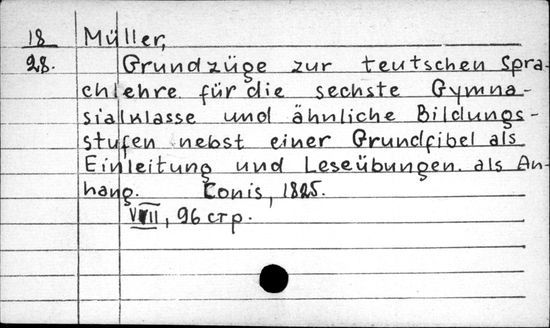 18 Müller,
28. Grundzüge zur teutschen Spra-
chlehre für die sechste Gymna-
sialklasse und ähnliche Bildungs-
stufen nebst einer Grundfibel als
Einleitung und Leseübungen als An-
hang. Conis, 1825.
VIII, 96 стр.